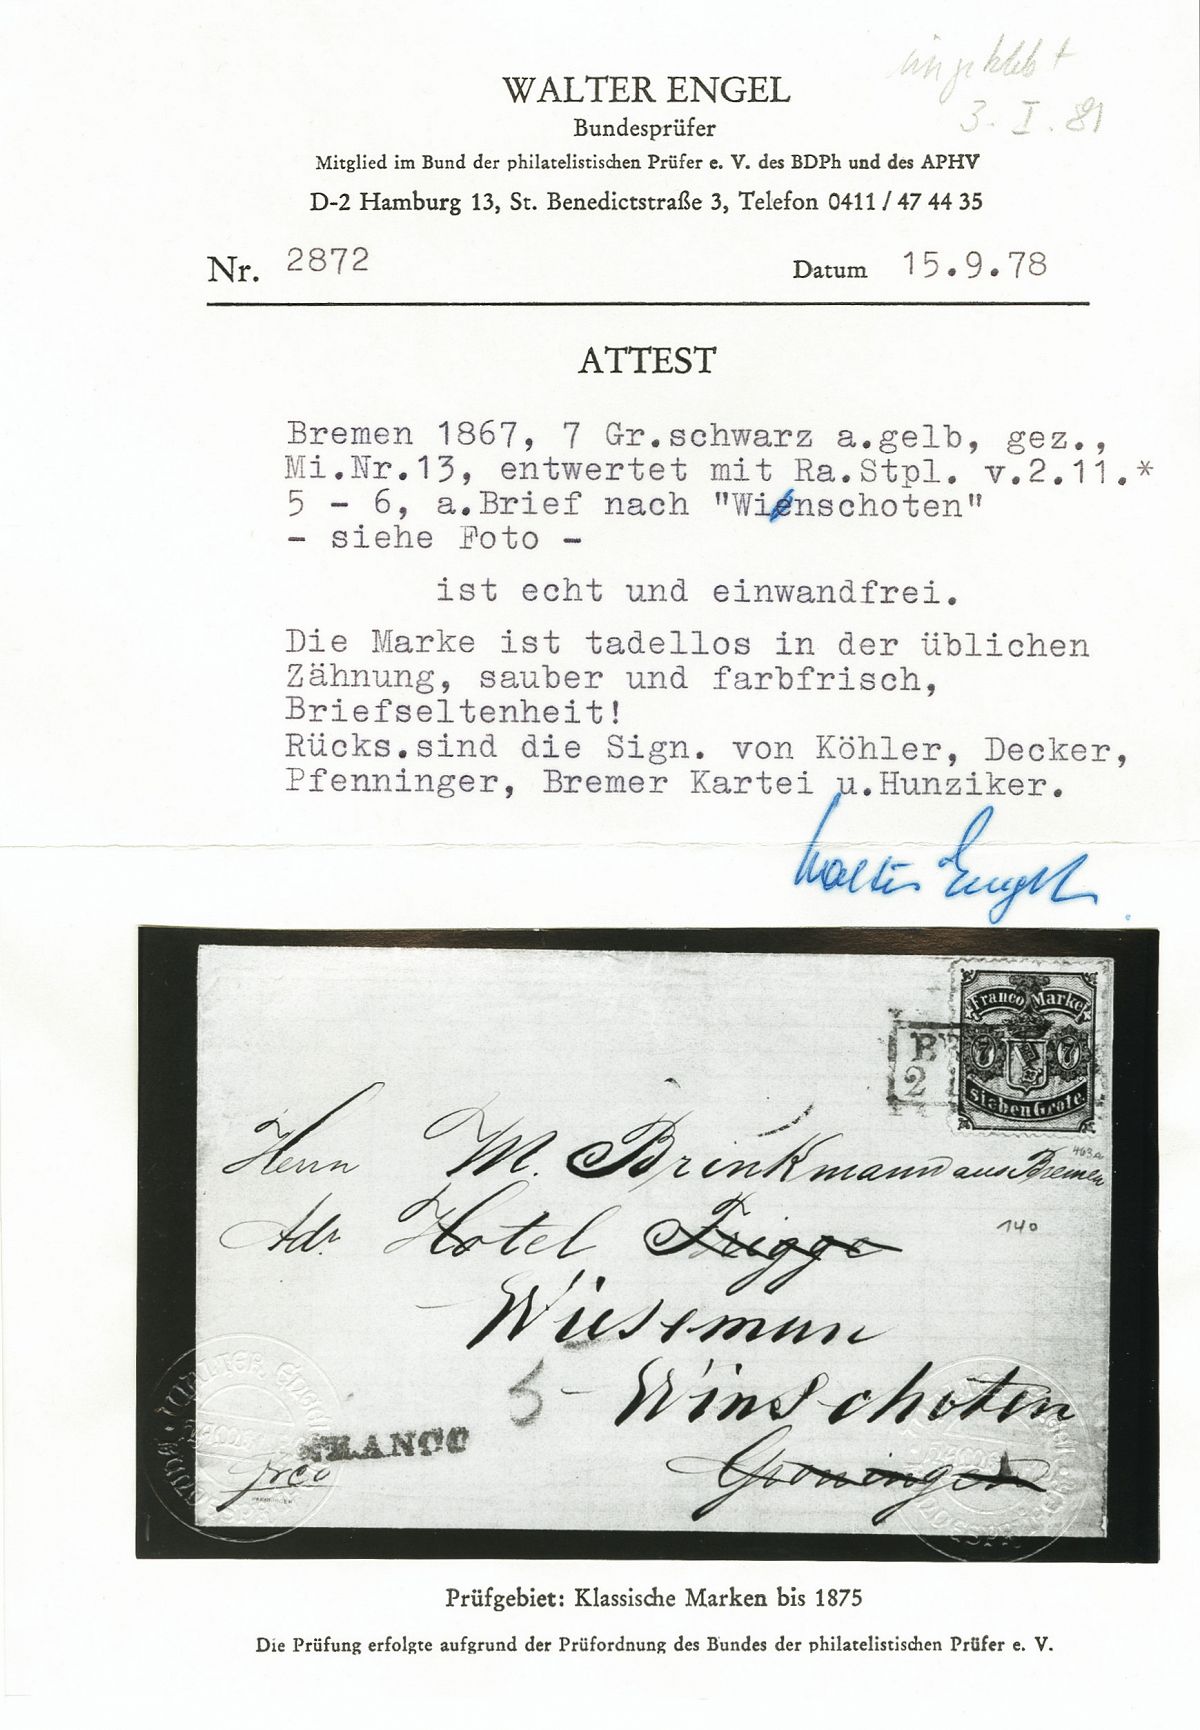 eingeklebt
3. I. 81
WALTER ENGEL
Bundesprüfer
Mitglied im Bund der philatelistischen Prüfer e. V. des BDPh und des APHV
D-2 Hamburg 13, St. Benedictstraße 3, Telefon 0411 / 47 44 35
Nr. 2872 Datum 15.9.78
ATTEST
Bremen 1867, 7 Gr.schwarz a.gelb, gez.,
Mi.Nr.13, entwertet mit Ra.Stpl. v.2.11.*
5 - 6, a.Brief nach "Wienschoten"
- siehe Foto -
ist echt und einwandfrei.
Die Marke ist tadellos in der üblichen
Zähnung, sauber und farbfrisch,
Briefseltenheit!
Rücks.sind die Sign. von Köhler, Decker,
Pfenninger, Bremer Kartei u.Hunziker.
Walter Engel
Franco Marke
7 7
Sieben Grote.
B
2
Herrn M. Brinkmann aus Bremen
403a
Adr Hotel Frigge
140
Wiesemann
5 Winschoten
FRANCO
Groningen
frco
PFENNINGER
WALTER ENGEL
BUNDESPRÜFER
Prüfgebiet: Klassische Marken bis 1875
Die Prüfung erfolgte aufgrund der Prüfordnung des Bundes der philatelistischen Prüfer e. V.